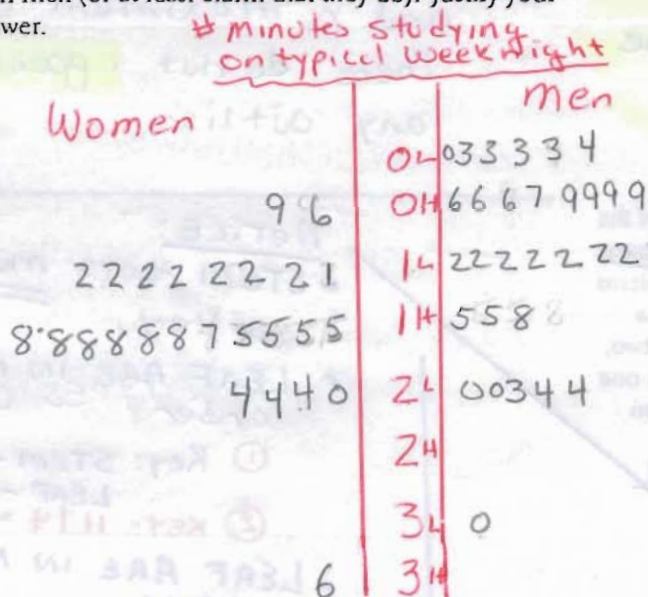 wer.
# minutes studying
on typical weeknight
Women Men
0L 033334
96 0H 66679999
222222221 1L 2222222
888888875555 1H 558
4440 2L 00344
2H
3L 0
6 3H